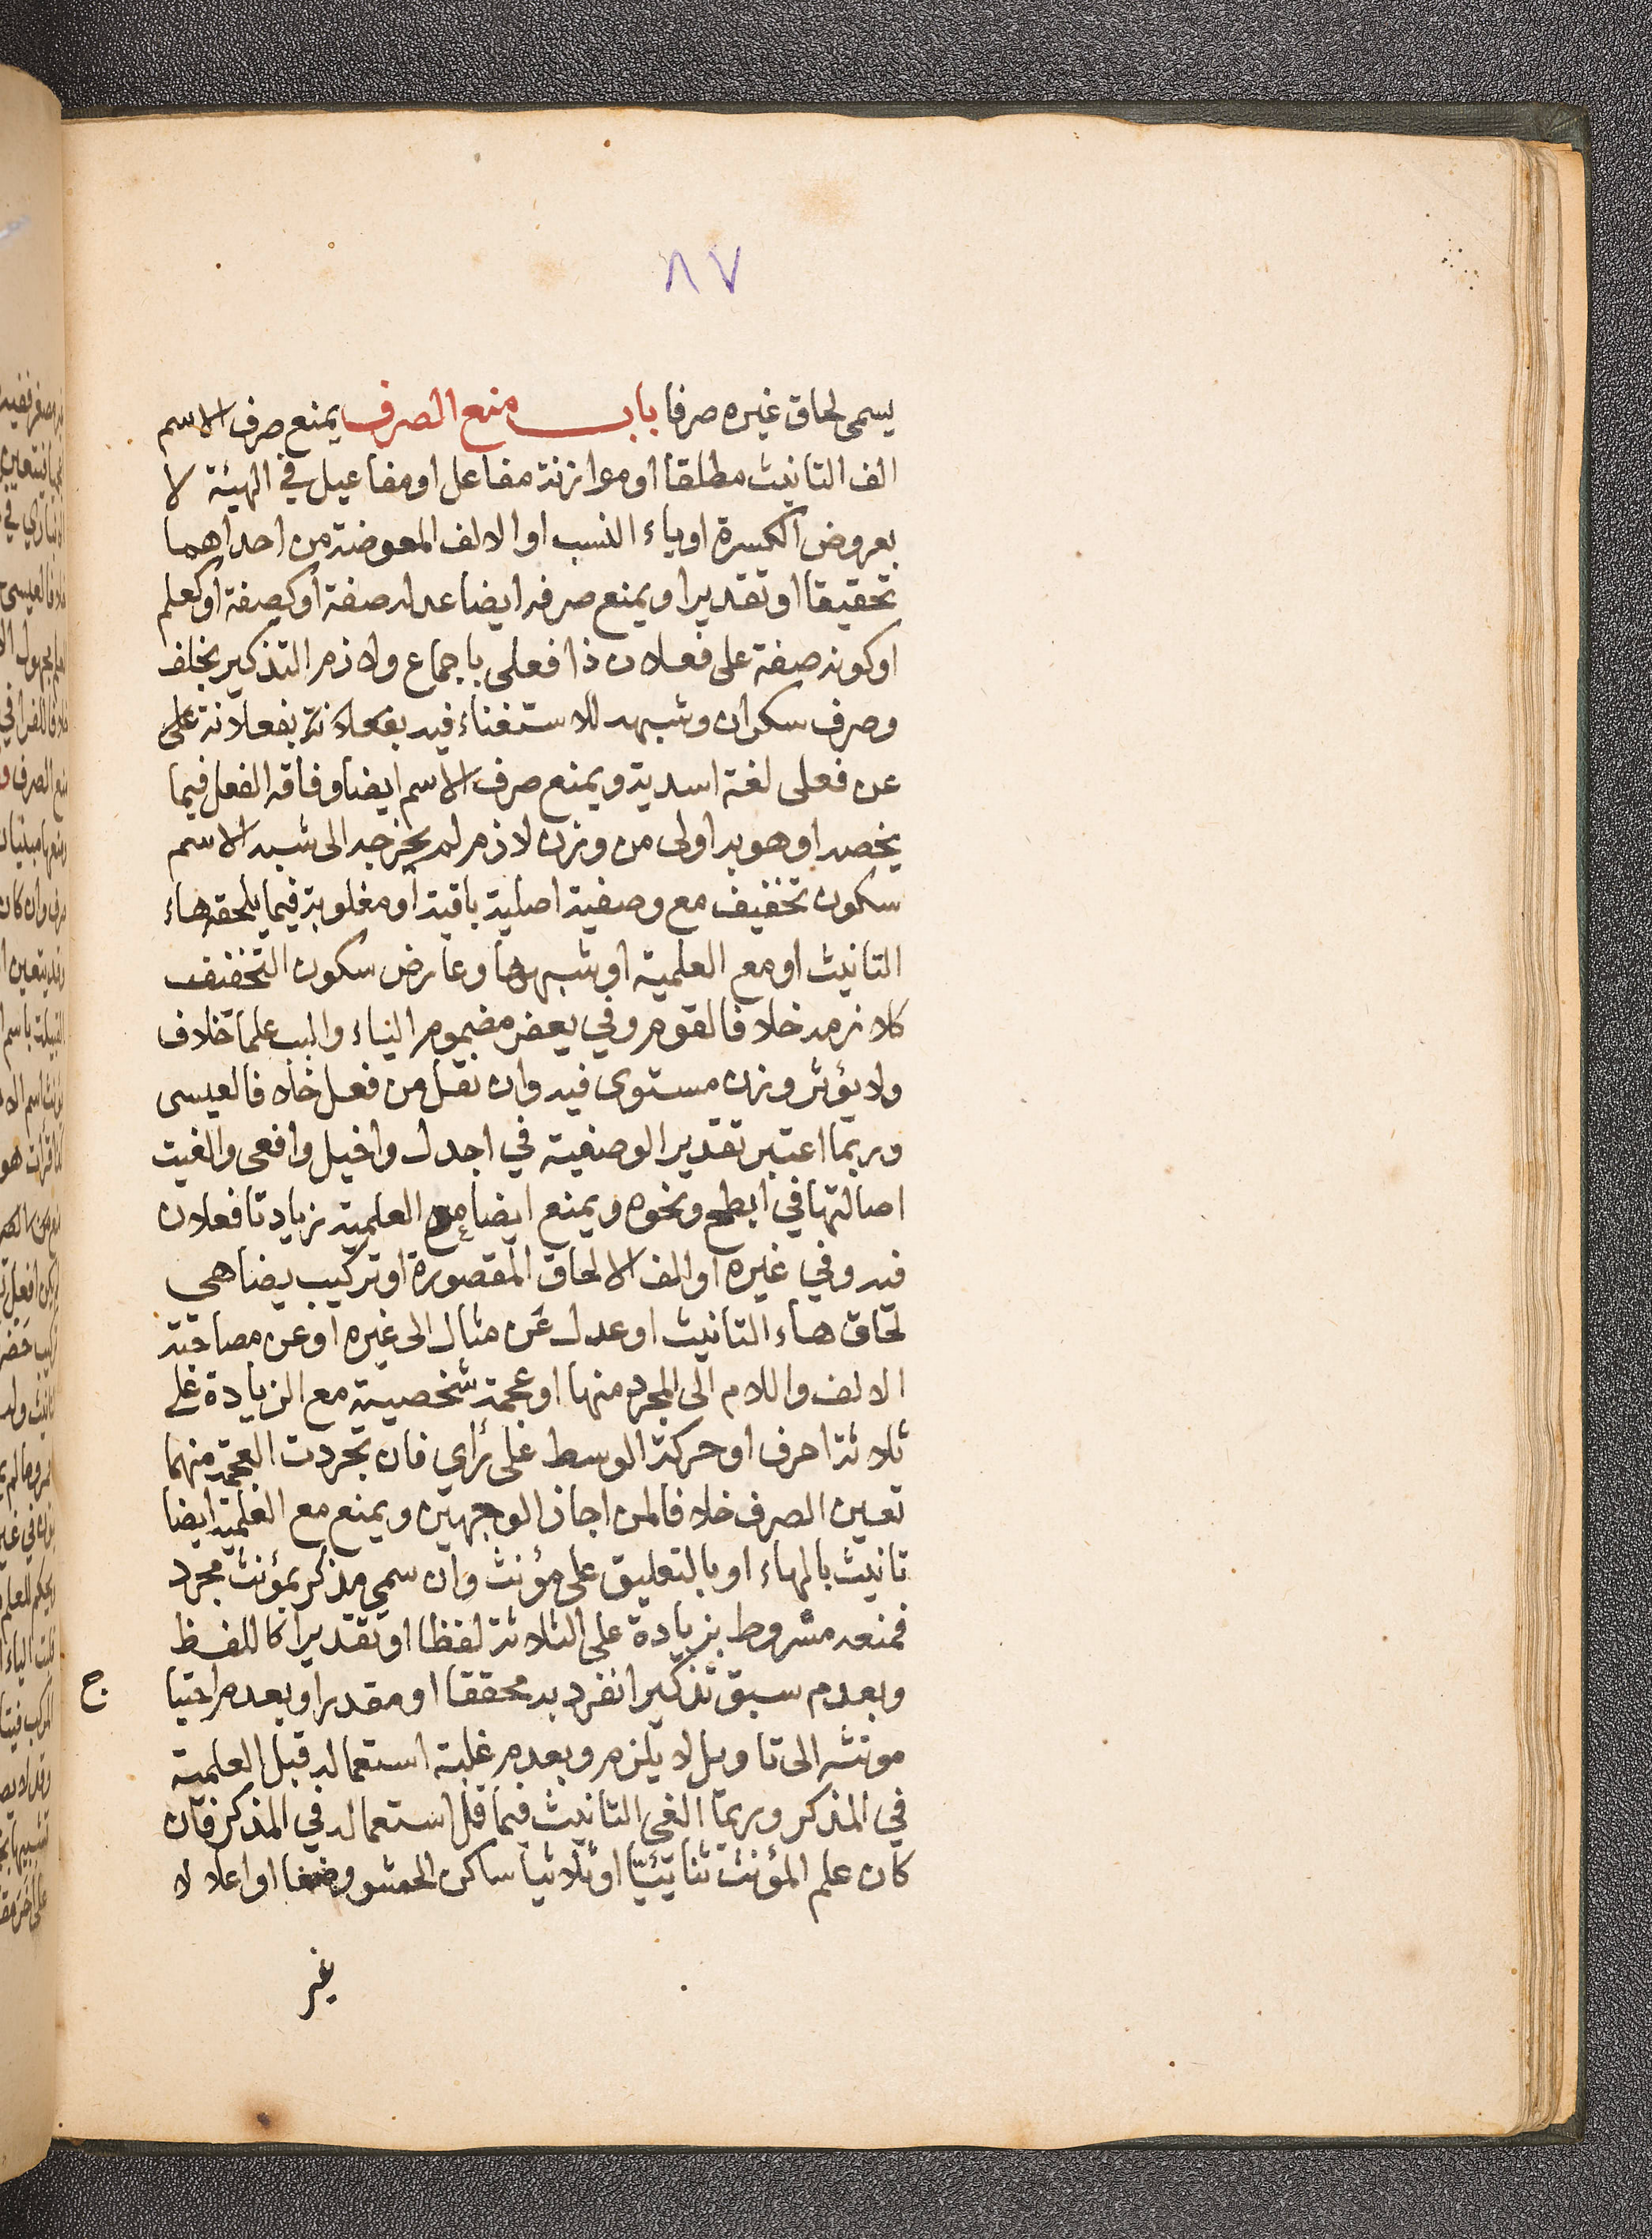 ٨٧
يسمى لحاق غيره صرفا باب منع الصرف يمنع صرف الاسم
الف التانيث مطلقا او موازنة مفاعل او مفاعيل في الهيئة لا
بعروض الكسرة او ياء النسب او الالف المعوضة من احداهما
تحقيقا او تقديرا ويمنع صرفه ايضا عدله صفة او كصفة او كعلم
او كونه صفة على فعلان ذا فعلى باجماع ولازم التذكير بخلف
وصرف سكران وشبهه للاستغناء فيه بفعلانة بفعلانة على
عن فعلى لغة اسدية ويمنع صرف الاسم ايضا وفاقه الفعل فيما
يخصه او هو به اولى من وزن لازم لم يخرجه الى شبه الاسم
سكون تخفيف مع وصفية اصلية باقية او مغلوبة فيما يلحقه هاء
التانيث او مع العلمية او شبهها وعارض سكون التخفيف
كلازمه خلافا لقوم وفي يعفر مضموم الياء والبب علما خلاف
ولا يؤثر وزن مستوى فيه وان نقل من فعل خلافا لعيسى
وربما اعتبر تقدير الوصفية في اجدل واخيل وافعى والغيت
اصالتها في ابطح ونحوه ويمنع ايضا مع العلمية زيادتا فعلان
فيه وفي غيره او الف الالحاق المقصورة او تركيب يضاهي
لحاق هاء التانيث او عدل عن مثال الى غيره او عن مصاحبة
الالف واللام الى المجرد منها او عجمة شخصية مع الزيادة على
ثلاثة احرف او حركة الوسط على رأي فان تجردت العجمة منهما
تعين الصرف خلافا لمن اجاز الوجهين ويمنع مع العلمية ايضا
تانيث بالهاء او بالتعليق على مؤنث وان سمي مذكر بمؤنث مجرد
فمنعه مشروط بزيادة على الثلاثة لفظا او تقديرا كاللفظ
وبعدم سبق تذكير انفرد به محققا او مقدرا وبعدم احتيا
ج
مونثه الى تاويل لا يلزم وبعدم غلبة استعماله قبل العلمية
في المذكر وربما الغي التانيث فيما قل استعماله في المذكر فان
كان علم المؤنث ثنائيا او ثلاثيا ساكن الحشو وضعا او اعلالا
غير